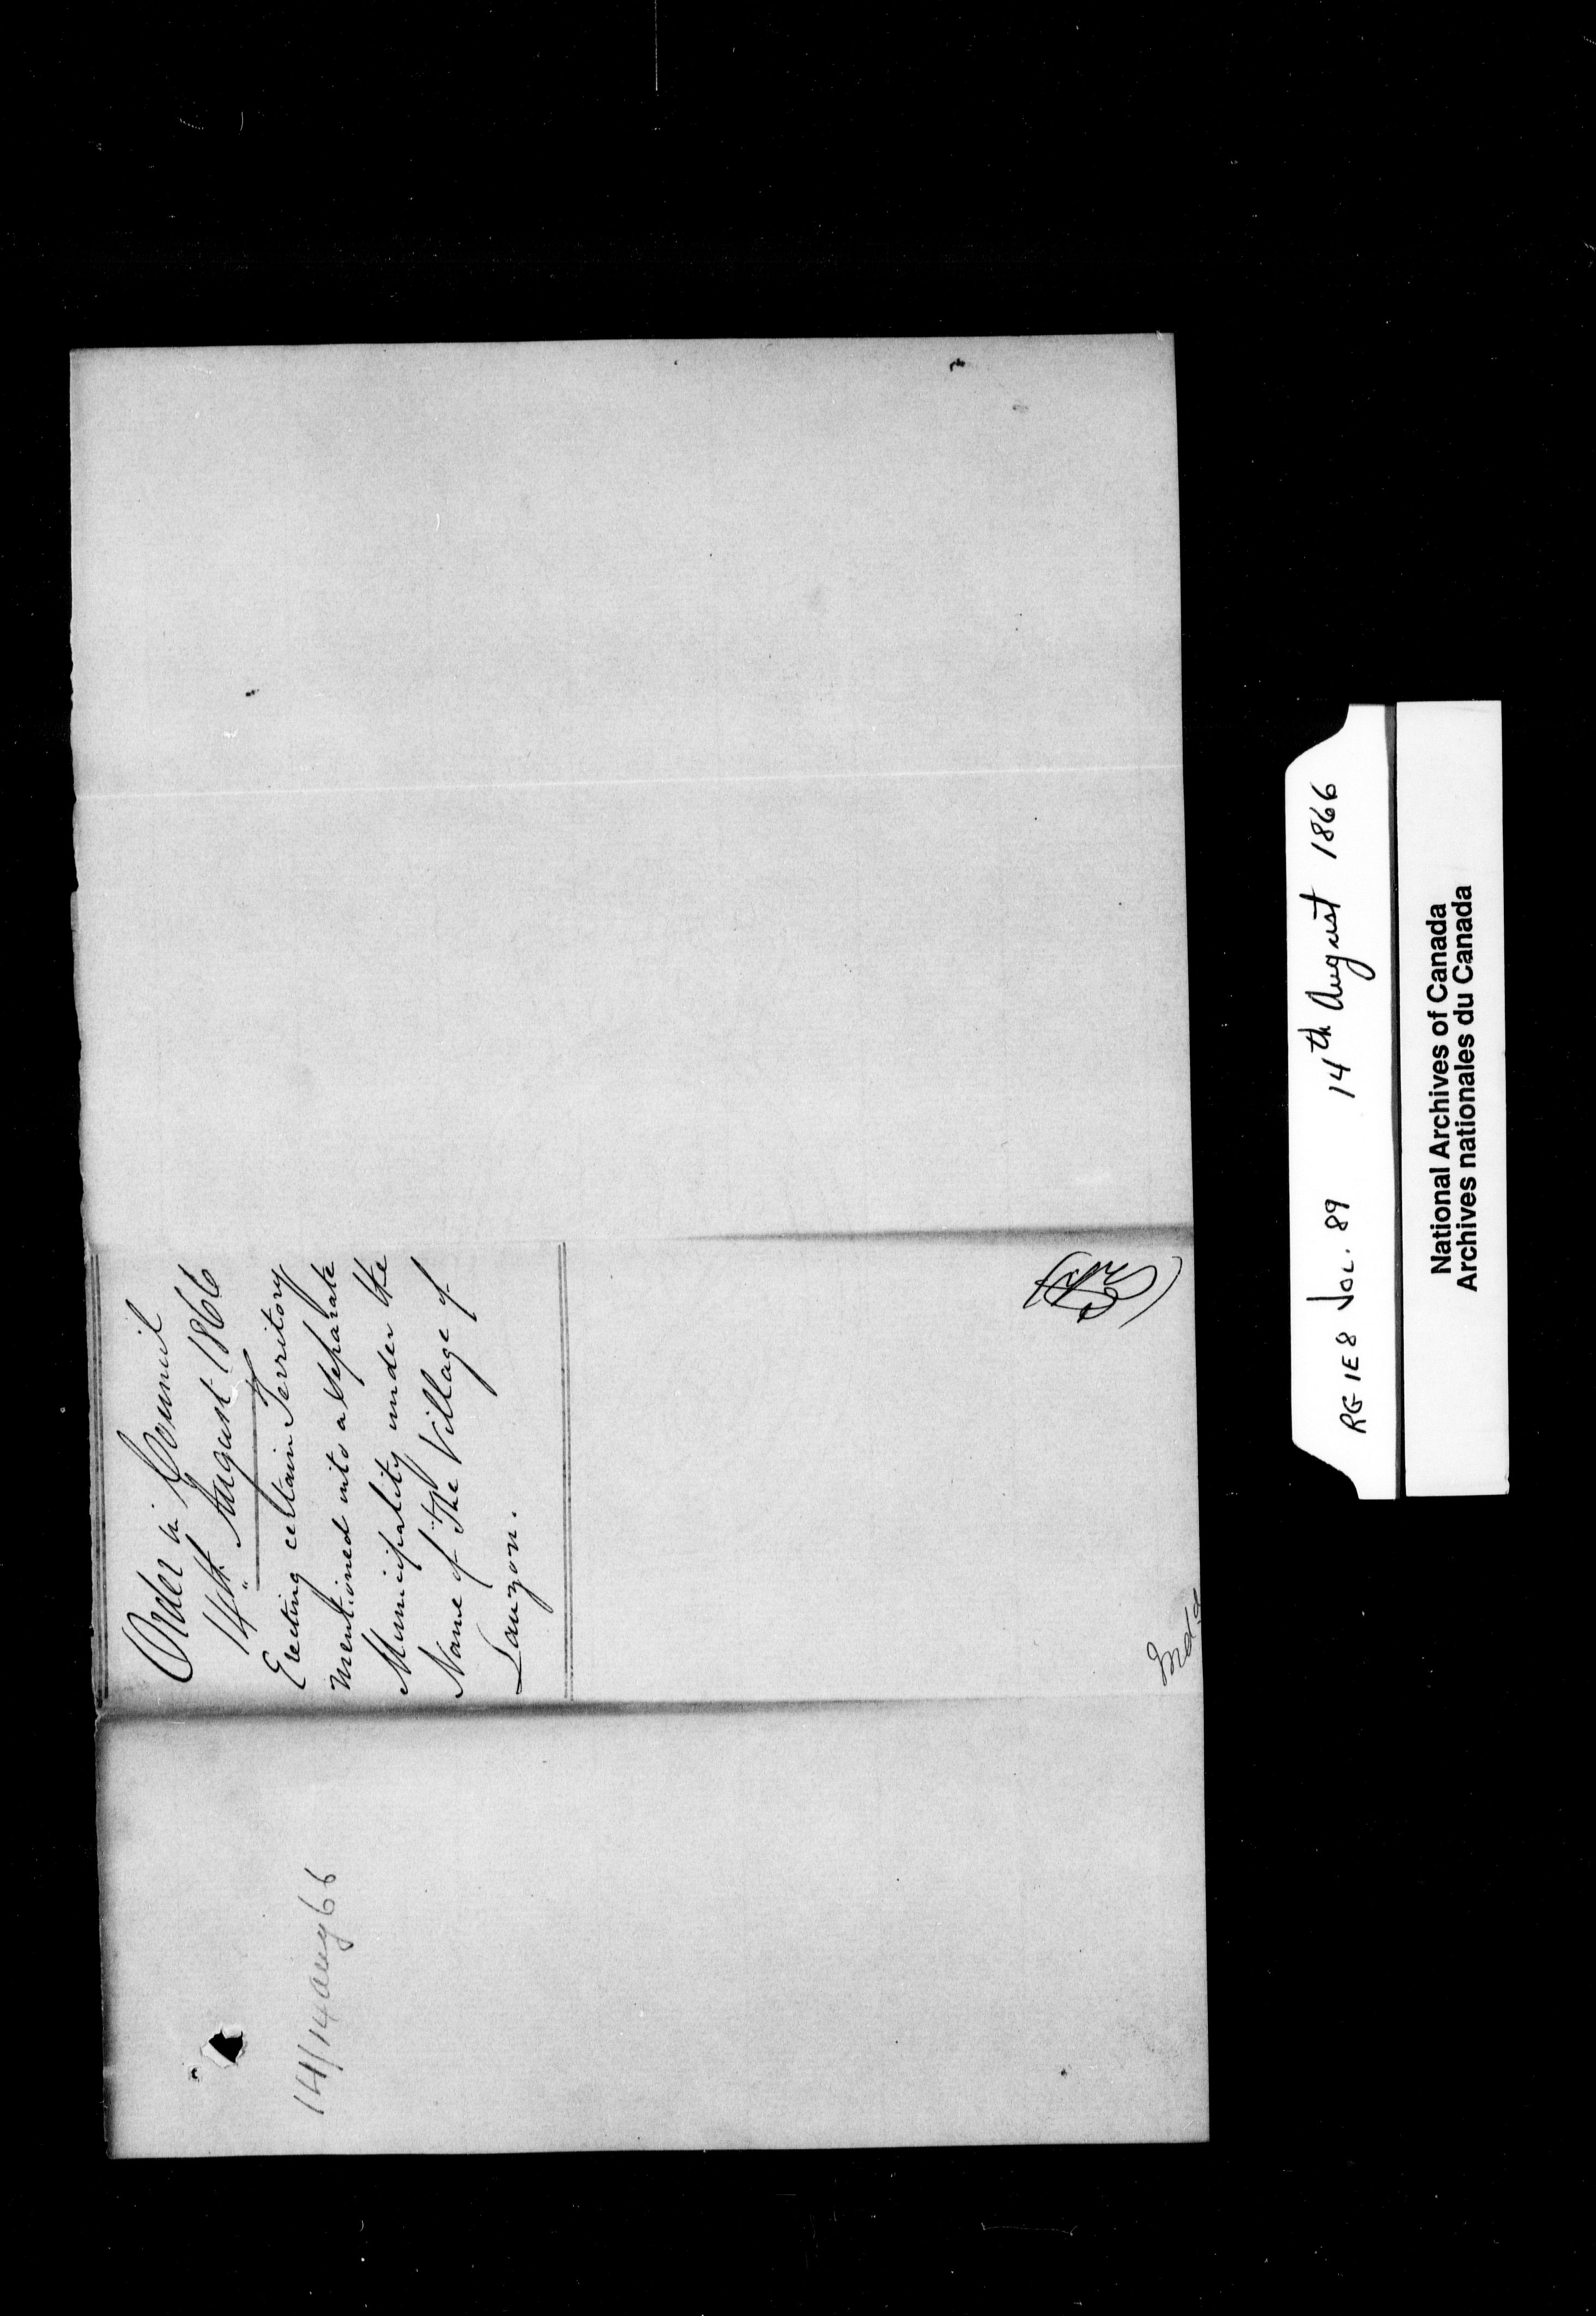 Order in Council
14th August 1866
Erecting certain Territory
mentioned into a separate
Municipality under the
Name of "The Village of
Lauzon.
14/14 Aug 66
RG 1E8 Vol. 89 14th August 1866
National Archives of Canada
Archives nationales du Canada